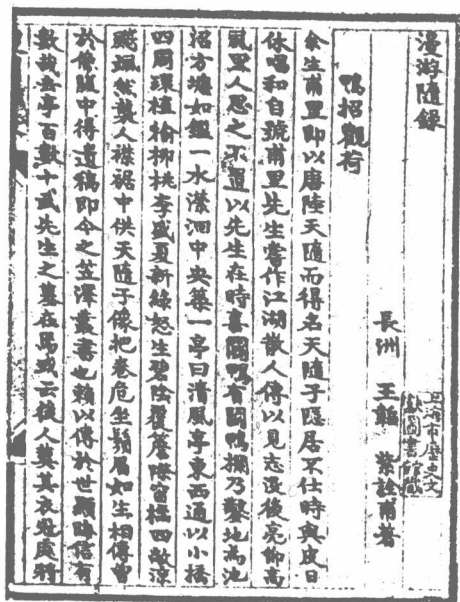 漫游隨錄
長洲　王韜　紫詮甫著
上海市歷史文獻圖書館藏
鴨沼觀荷
余生甫里即以唐陸天隨而得名天隨子隱居不仕時與皮日
休唱和自號甫里先生嘗作江湖散人傳以見志沒後亮節高
風里人思之不置以先生在時喜鬬鴨有鬬鴨欄乃鑿地為池
沼方塘如鑑一水瀠洄中央築一亭曰清風亭東西通以小橋
四圍環植榆柳桃李盛夏新綠怒生碧陰覆簷際窗櫺四敞涼
颸颯然襲人襟裾中供天隨子像把卷危坐鬚眉如生相傳曾
於像腹中得遺稿即今之笠澤叢書也賴以傳於世顯晦信有
數哉去亭百數十武先生之墓在焉或云後人葬其衣冠處將